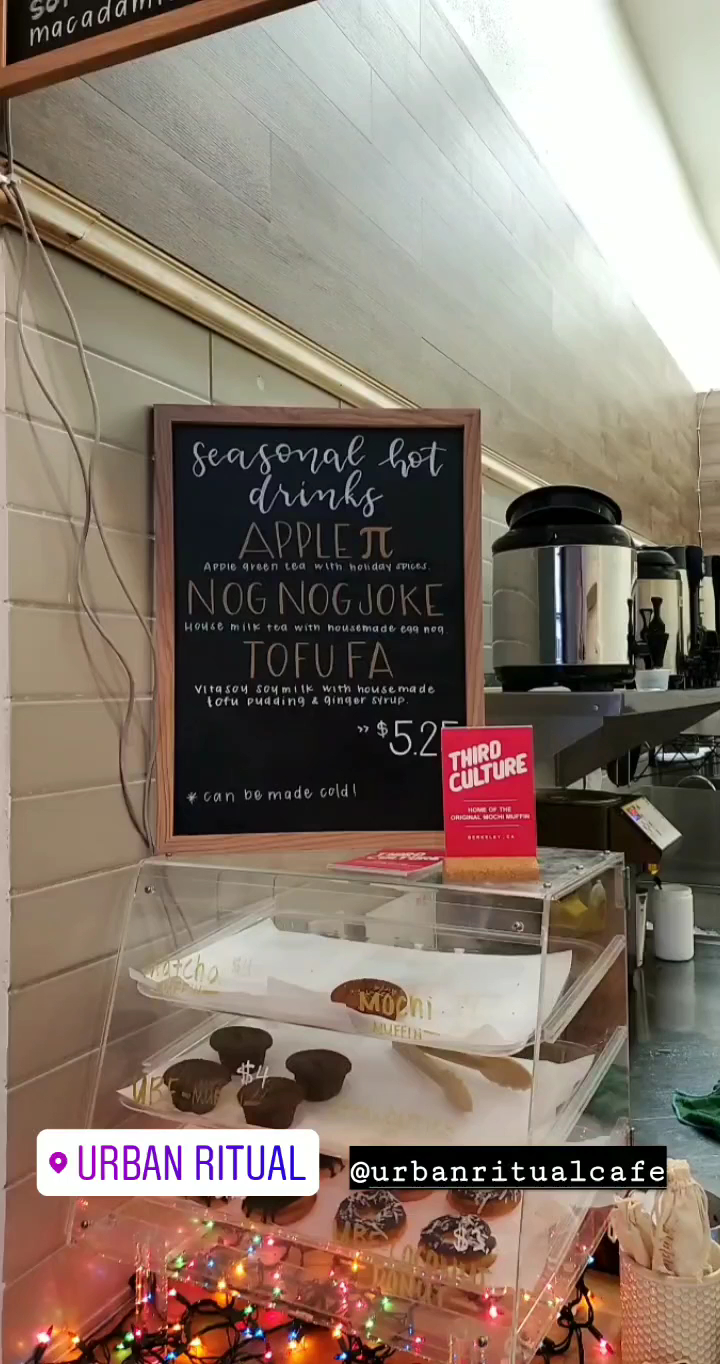 macadamia
seasonal hot
drinks
APPLE π
Apple green tea with holiday spices.
NOG NOG JOKE
House milk tea with housemade egg nog
TOFU FA
Vitasoy soymilk with housemade
tofu pudding & ginger syrup.
» $5.25
* can be made cold!
THIRD
CULTURE
HOME OF THE
ORIGINAL MOCHI MUFFIN
BERKELEY, CA
THIRD CULTURE
matcha $4
MOCHI
MUFFIN
$4
UBE
URBAN RITUAL
@urbanritualcafe
UBE COCONUT
DONUT